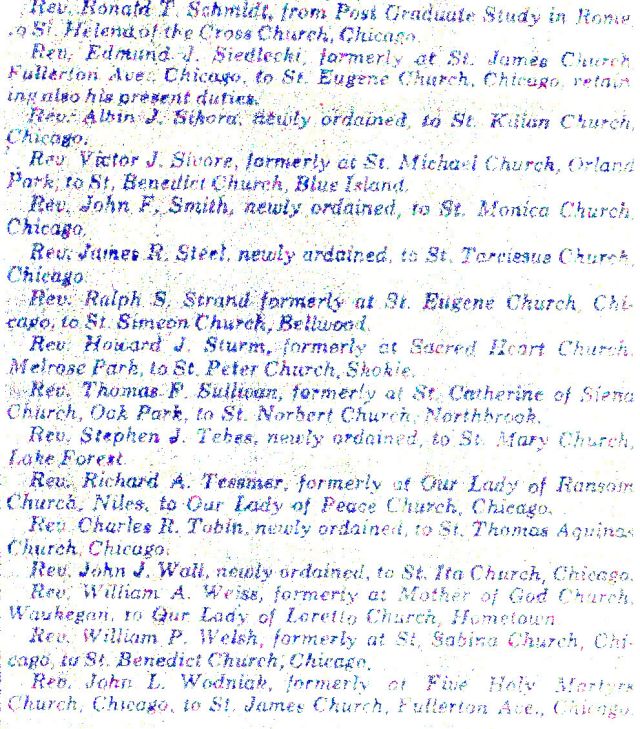 Rev. Ronald T. Schmidt, from Post Graduate Study in Rome
to St. Helena of the Cross Church, Chicago.
Rev. Edmund J. Siedlecki, formerly at St. James Church
Fullerton Ave., Chicago, to St. Eugene Church, Chicago, retain
ing also his present duties.
Rev. Albin J. Sikora, newly ordained, to St. Kilian Church,
Chicago.
Rev. Victor J. Sivore, formerly at St. Michael Church, Orland
Park, to St. Benedict Church, Blue Island.
Rev. John F. Smith, newly ordained, to St. Monica Church,
Chicago.
Rev. James R. Steel, newly ordained, to St. Tarcissus Church,
Chicago
Rev. Ralph S. Strand formerly at St. Eugene Church, Chi-
cago, to St. Simeon Church, Bellwood.
Rev. Howard J. Sturm, formerly at Sacred Heart Church,
Melrose Park, to St. Peter Church, Skokie.
Rev. Thomas F. Sullivan, formerly at St. Catherine of Siena
Church, Oak Park, to St. Norbert Church, Northbrook.
Rev. Stephen J. Tebes, newly ordained, to St. Mary Church,
Lake Forest.
Rev. Richard A. Tessmer, formerly at Our Lady of Ransom
Church, Niles, to Our Lady of Peace Church, Chicago.
Rev. Charles R. Tobin, newly ordained, to St. Thomas Aquinas
Church, Chicago.
Rev. John J. Wall, newly ordained, to St. Ita Church, Chicago.
Rev. William A. Weiss, formerly at Mother of God Church,
Waukegan, to Our Lady of Loretto Church, Hometown
Rev. William P. Welsh, formerly at St. Sabina Church, Chi-
cago, to St. Benedict Church, Chicago.
Rev. John L. Wodniak, formerly at Five Holy Martyrs
Church, Chicago, to St. James Church, Fullerton Ave., Chicago.